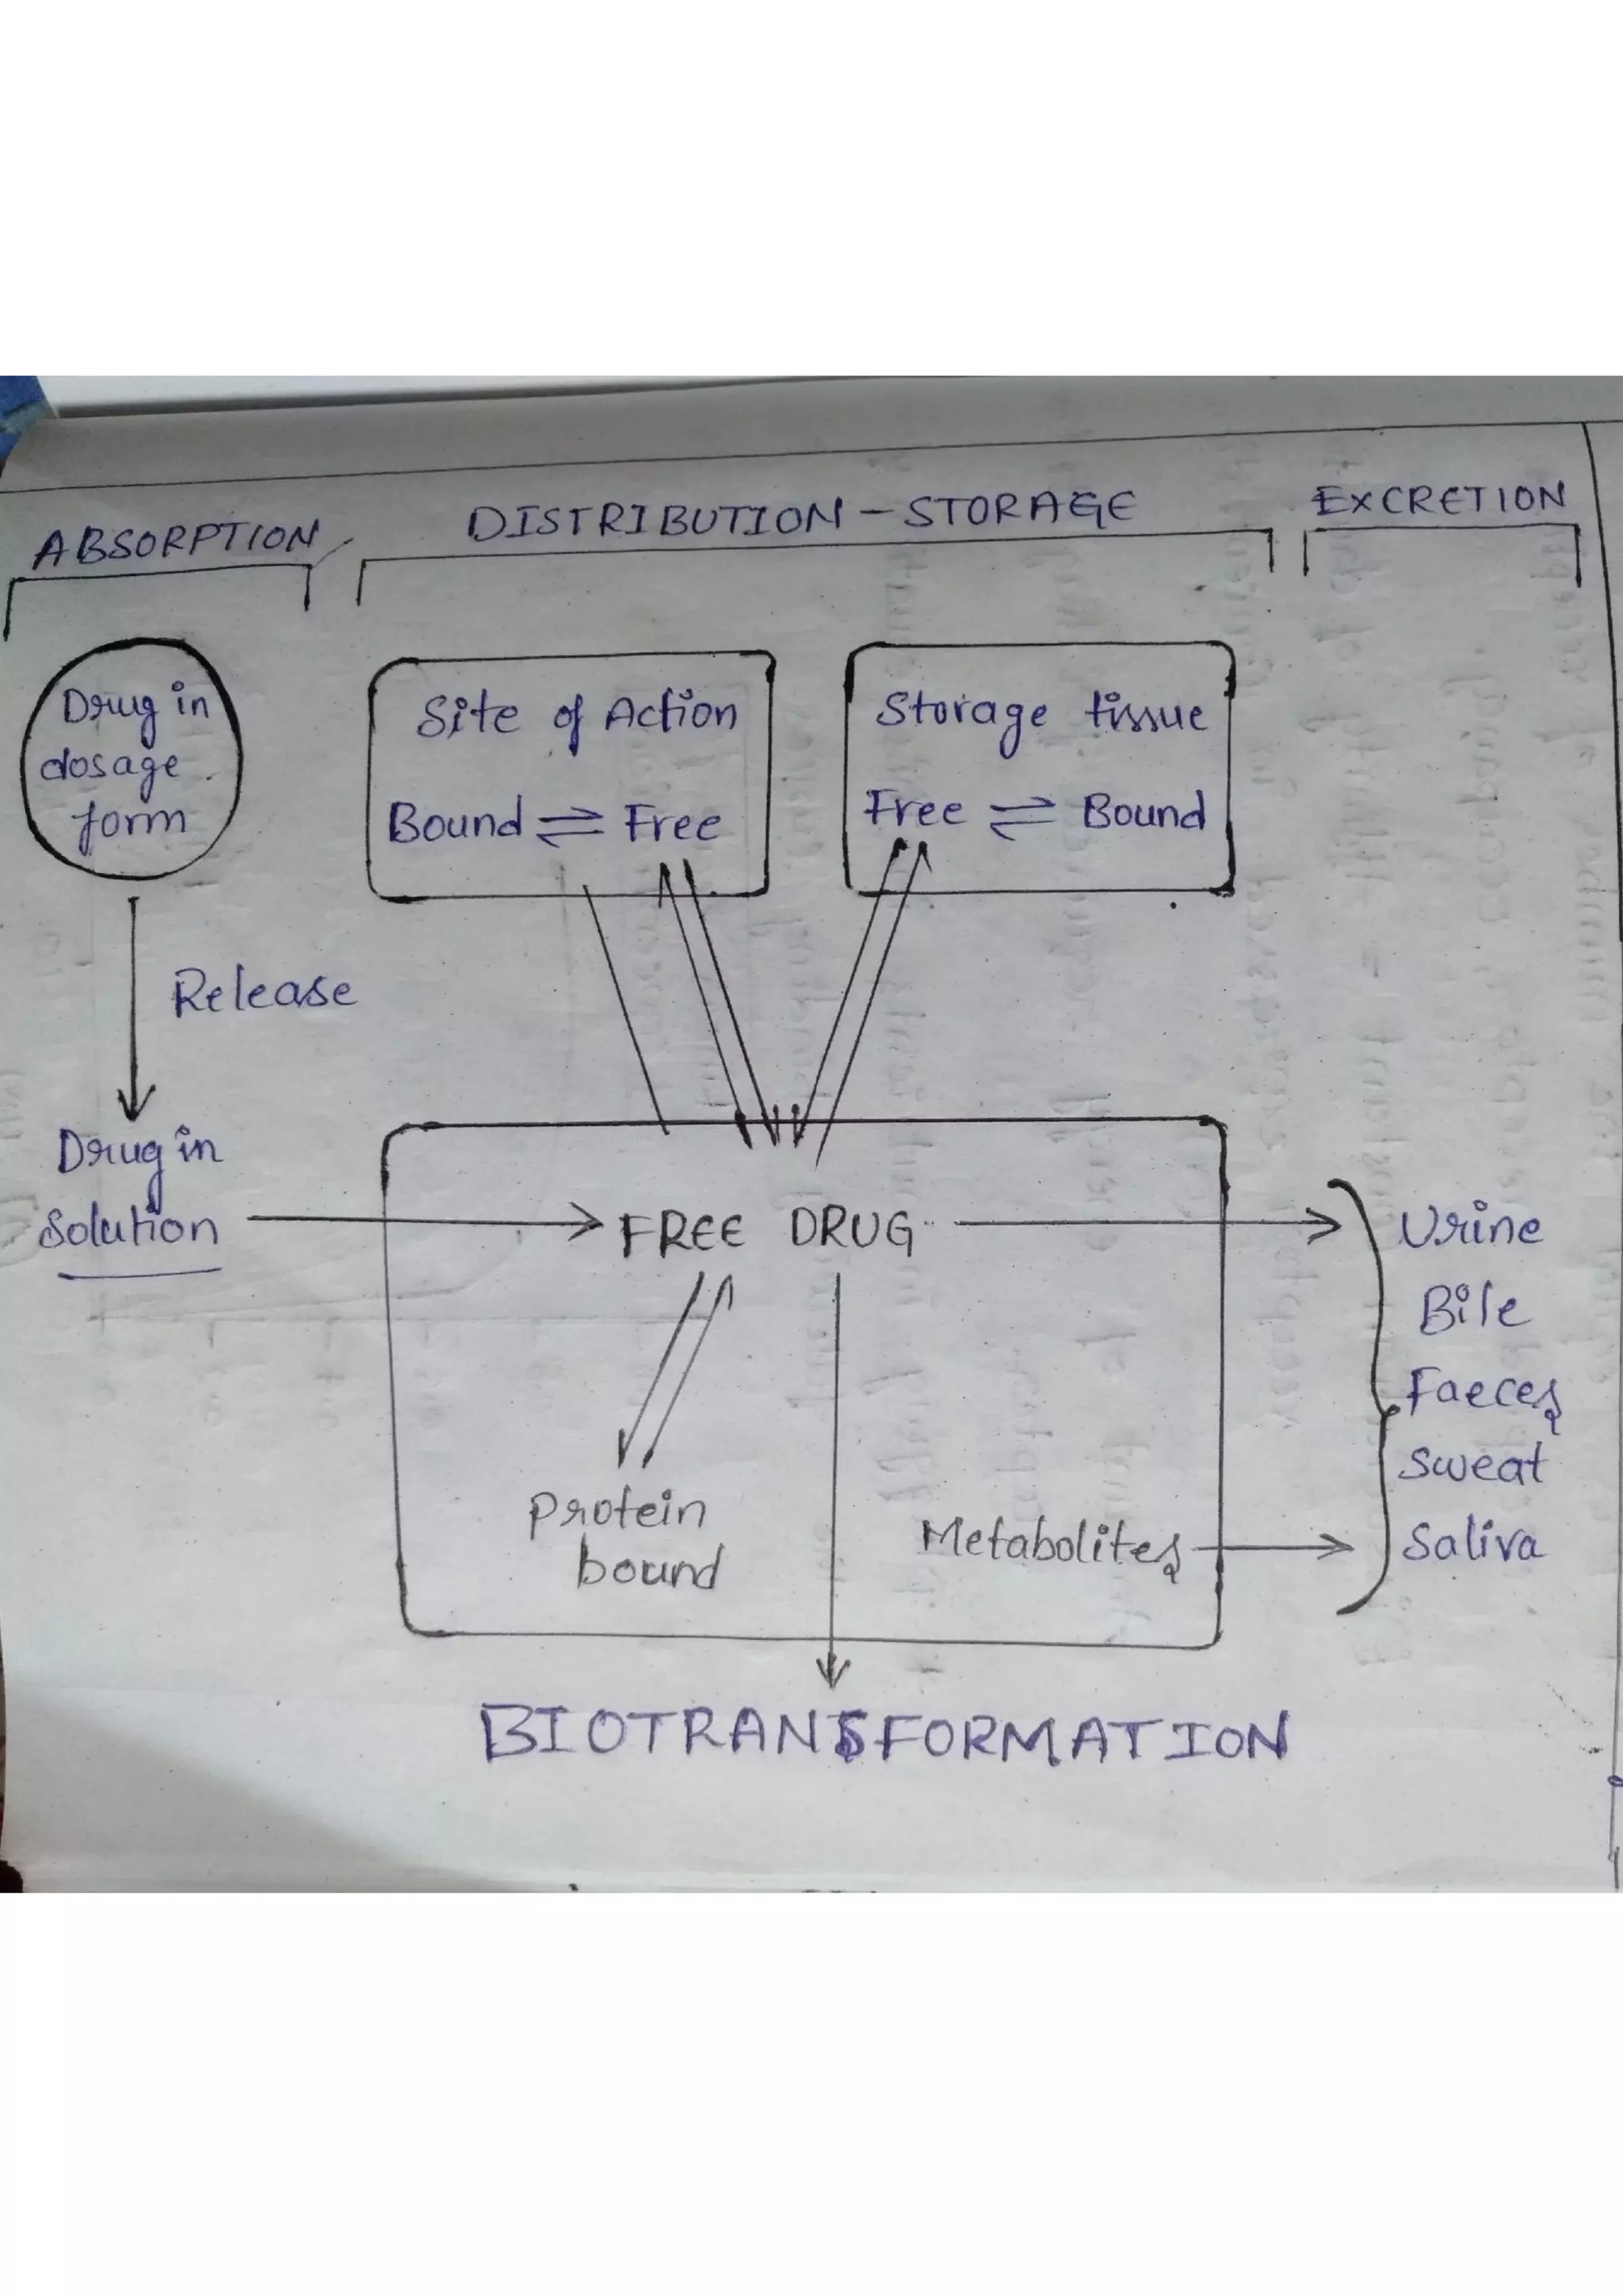 ABSORPTION
DISTRIBUTION - STORAGE
EXCRETION
Drug in
dosage
form
Site of Action
Bound ⇌ Free
Storage tissue
Free ⇌ Bound
Release
Drug in
Solution
FREE DRUG
Protein
bound
Metabolites
Urine
Bile
Faeces
Sweat
Saliva
BIOTRANSFORMATION